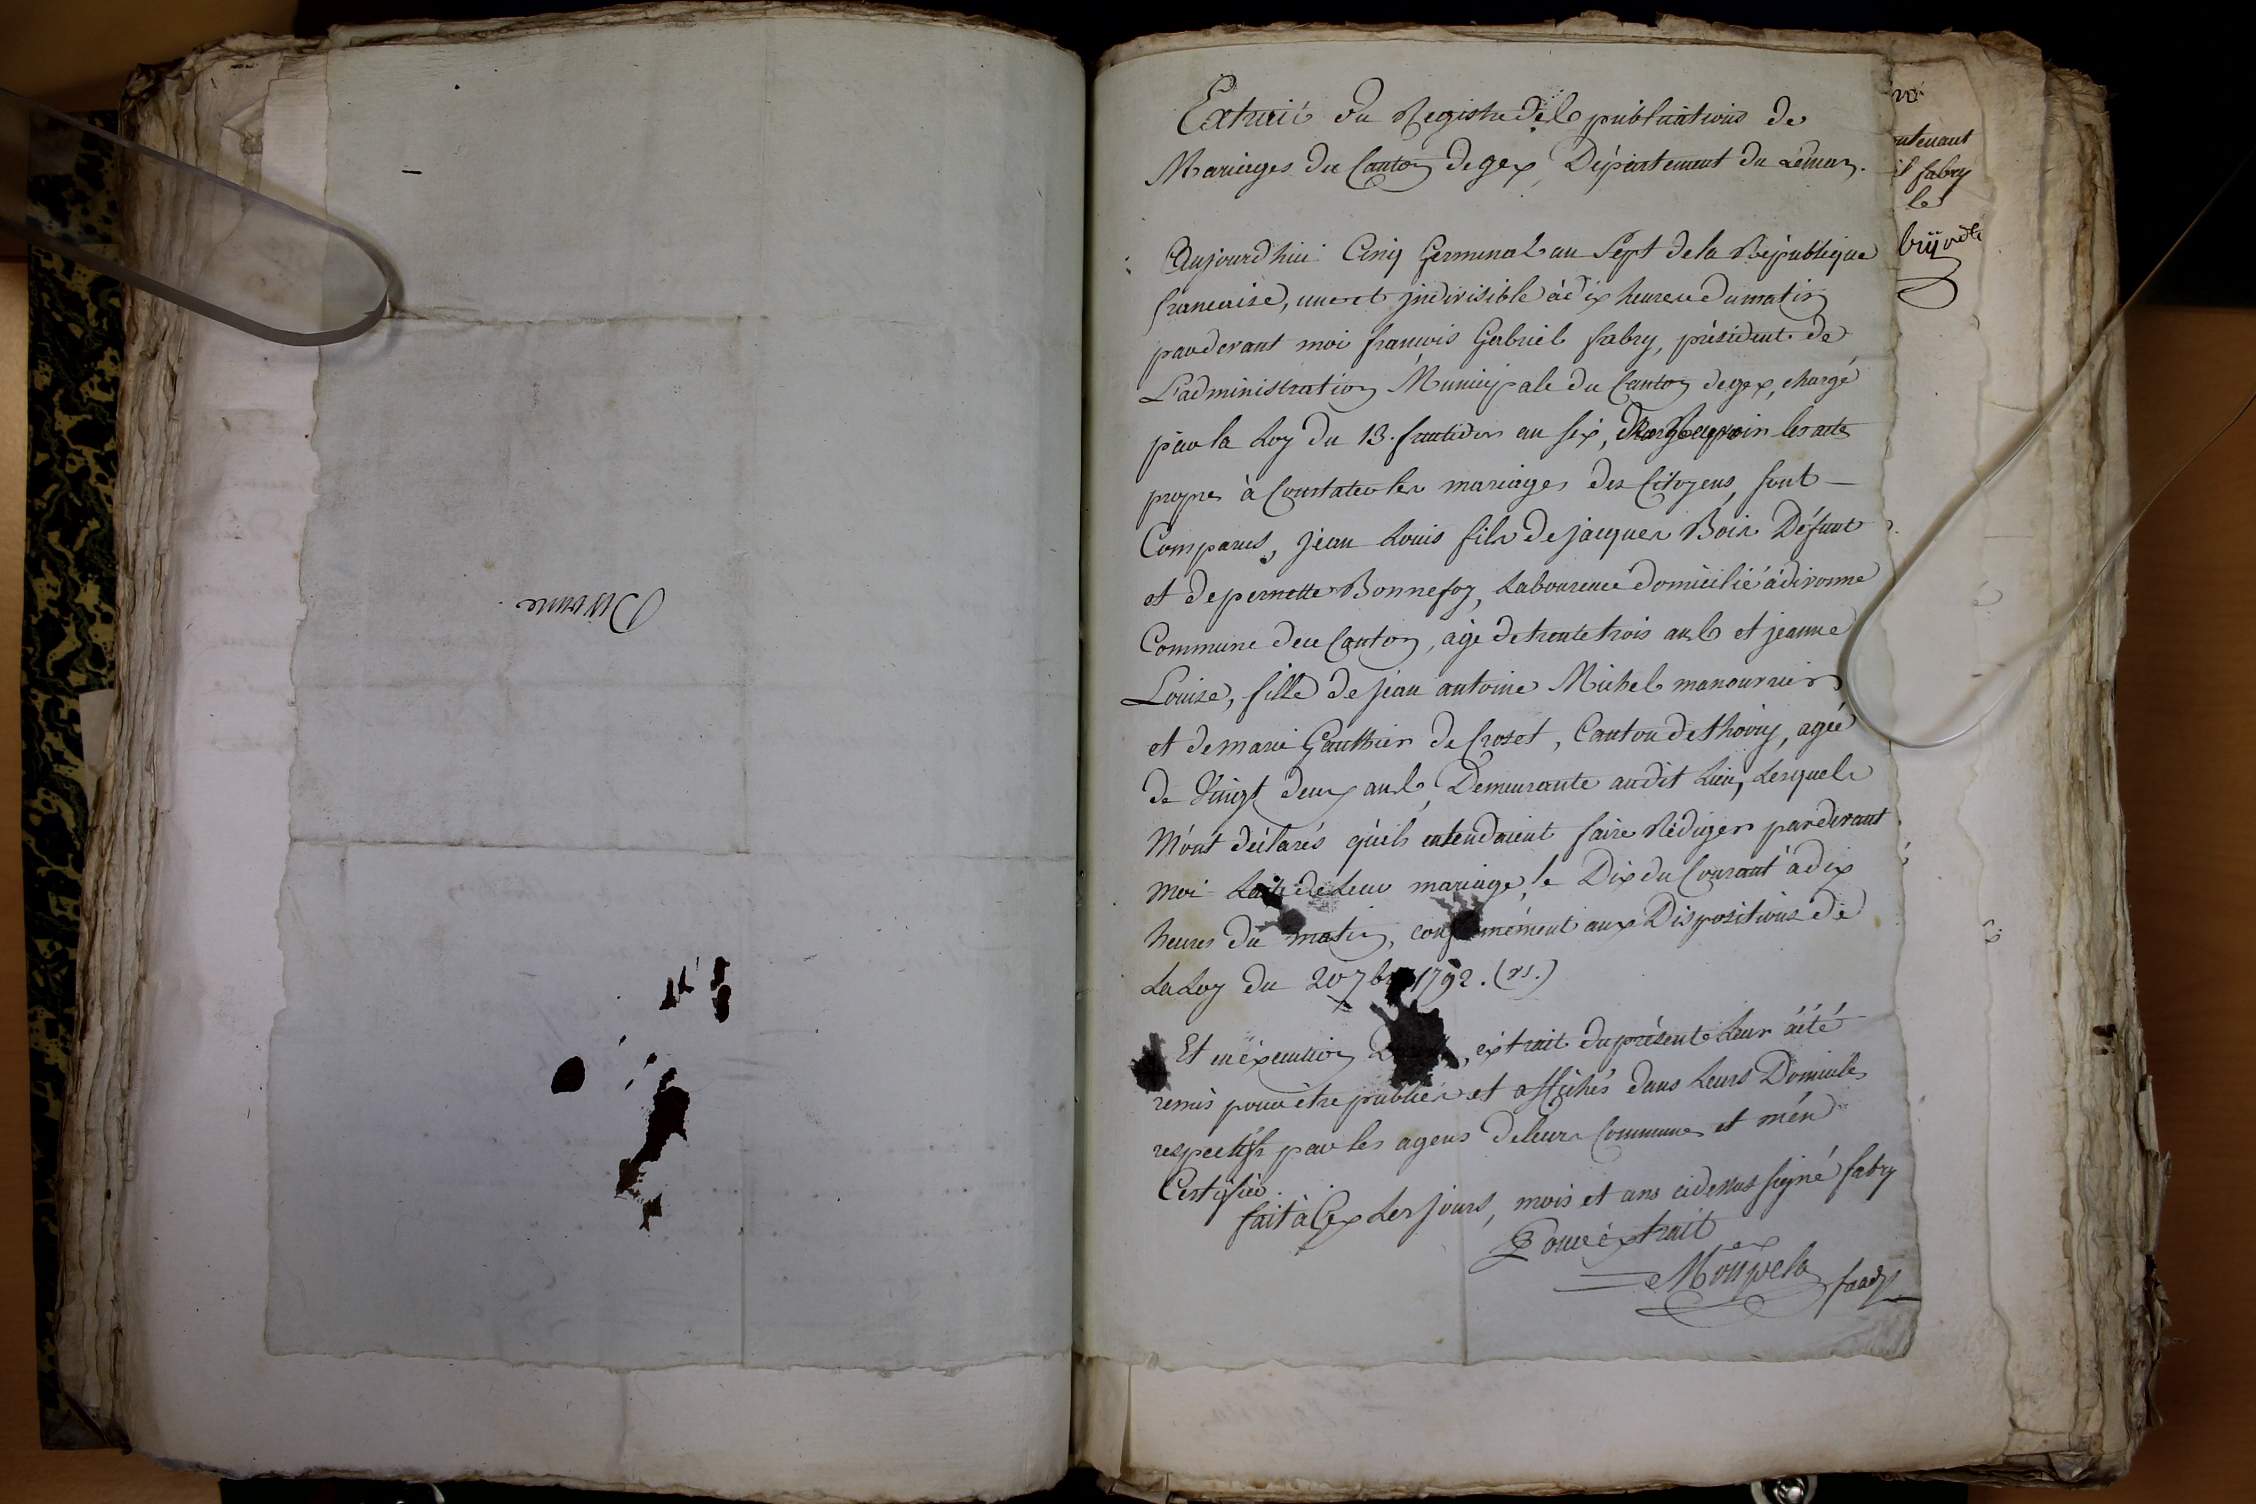 Divonne.
Extrait du Registre des publications de
Mariages du Canton de gex, Département du Léman.
Aujourd'hui Cinq Germinal an Sept de la République
francaise, une et jndivisible à dix heures du matin
pardevant moi francois Gabriel fabry, président de
L'administration Municipale du Canton de gex, chargé
par la Loy du 13. fructidor an six, les actes
propres à Constater les mariages des Citoyens, sont
Comparus, jean Louis fils de jacques Bois Défunt
et de pernette Bonnefoy, Laboureur domicilié à divonne
Commune de ce Canton, agé de trente trois ans et jeanne
Louise, fille de jean antoine Michel manouvrier
et de marie Gauthier de Crozet, Canton de thoiry, agée
de Vingt deux ans, Demeurante audit Lieu, Lesquels
M'ont déclarés qu'ils entendoient faire Rédiger pardevant
moi de Leur mariage, le Dix du Courant à dix
heures du matin, conformément aux Dispositions de
La Loy du 20 7bre 1792. (vs.)
Et en éxecution, extrait du présent Leur a été
remis pour être publiés et affichés dans Leurs Domiciles
respectifs par les agens de leurs Communes et m'en
Certifier.
fait à Gex Les jours, mois et ans cidessus signé fabry
Pour éxtrait
ontenant
fabry
le